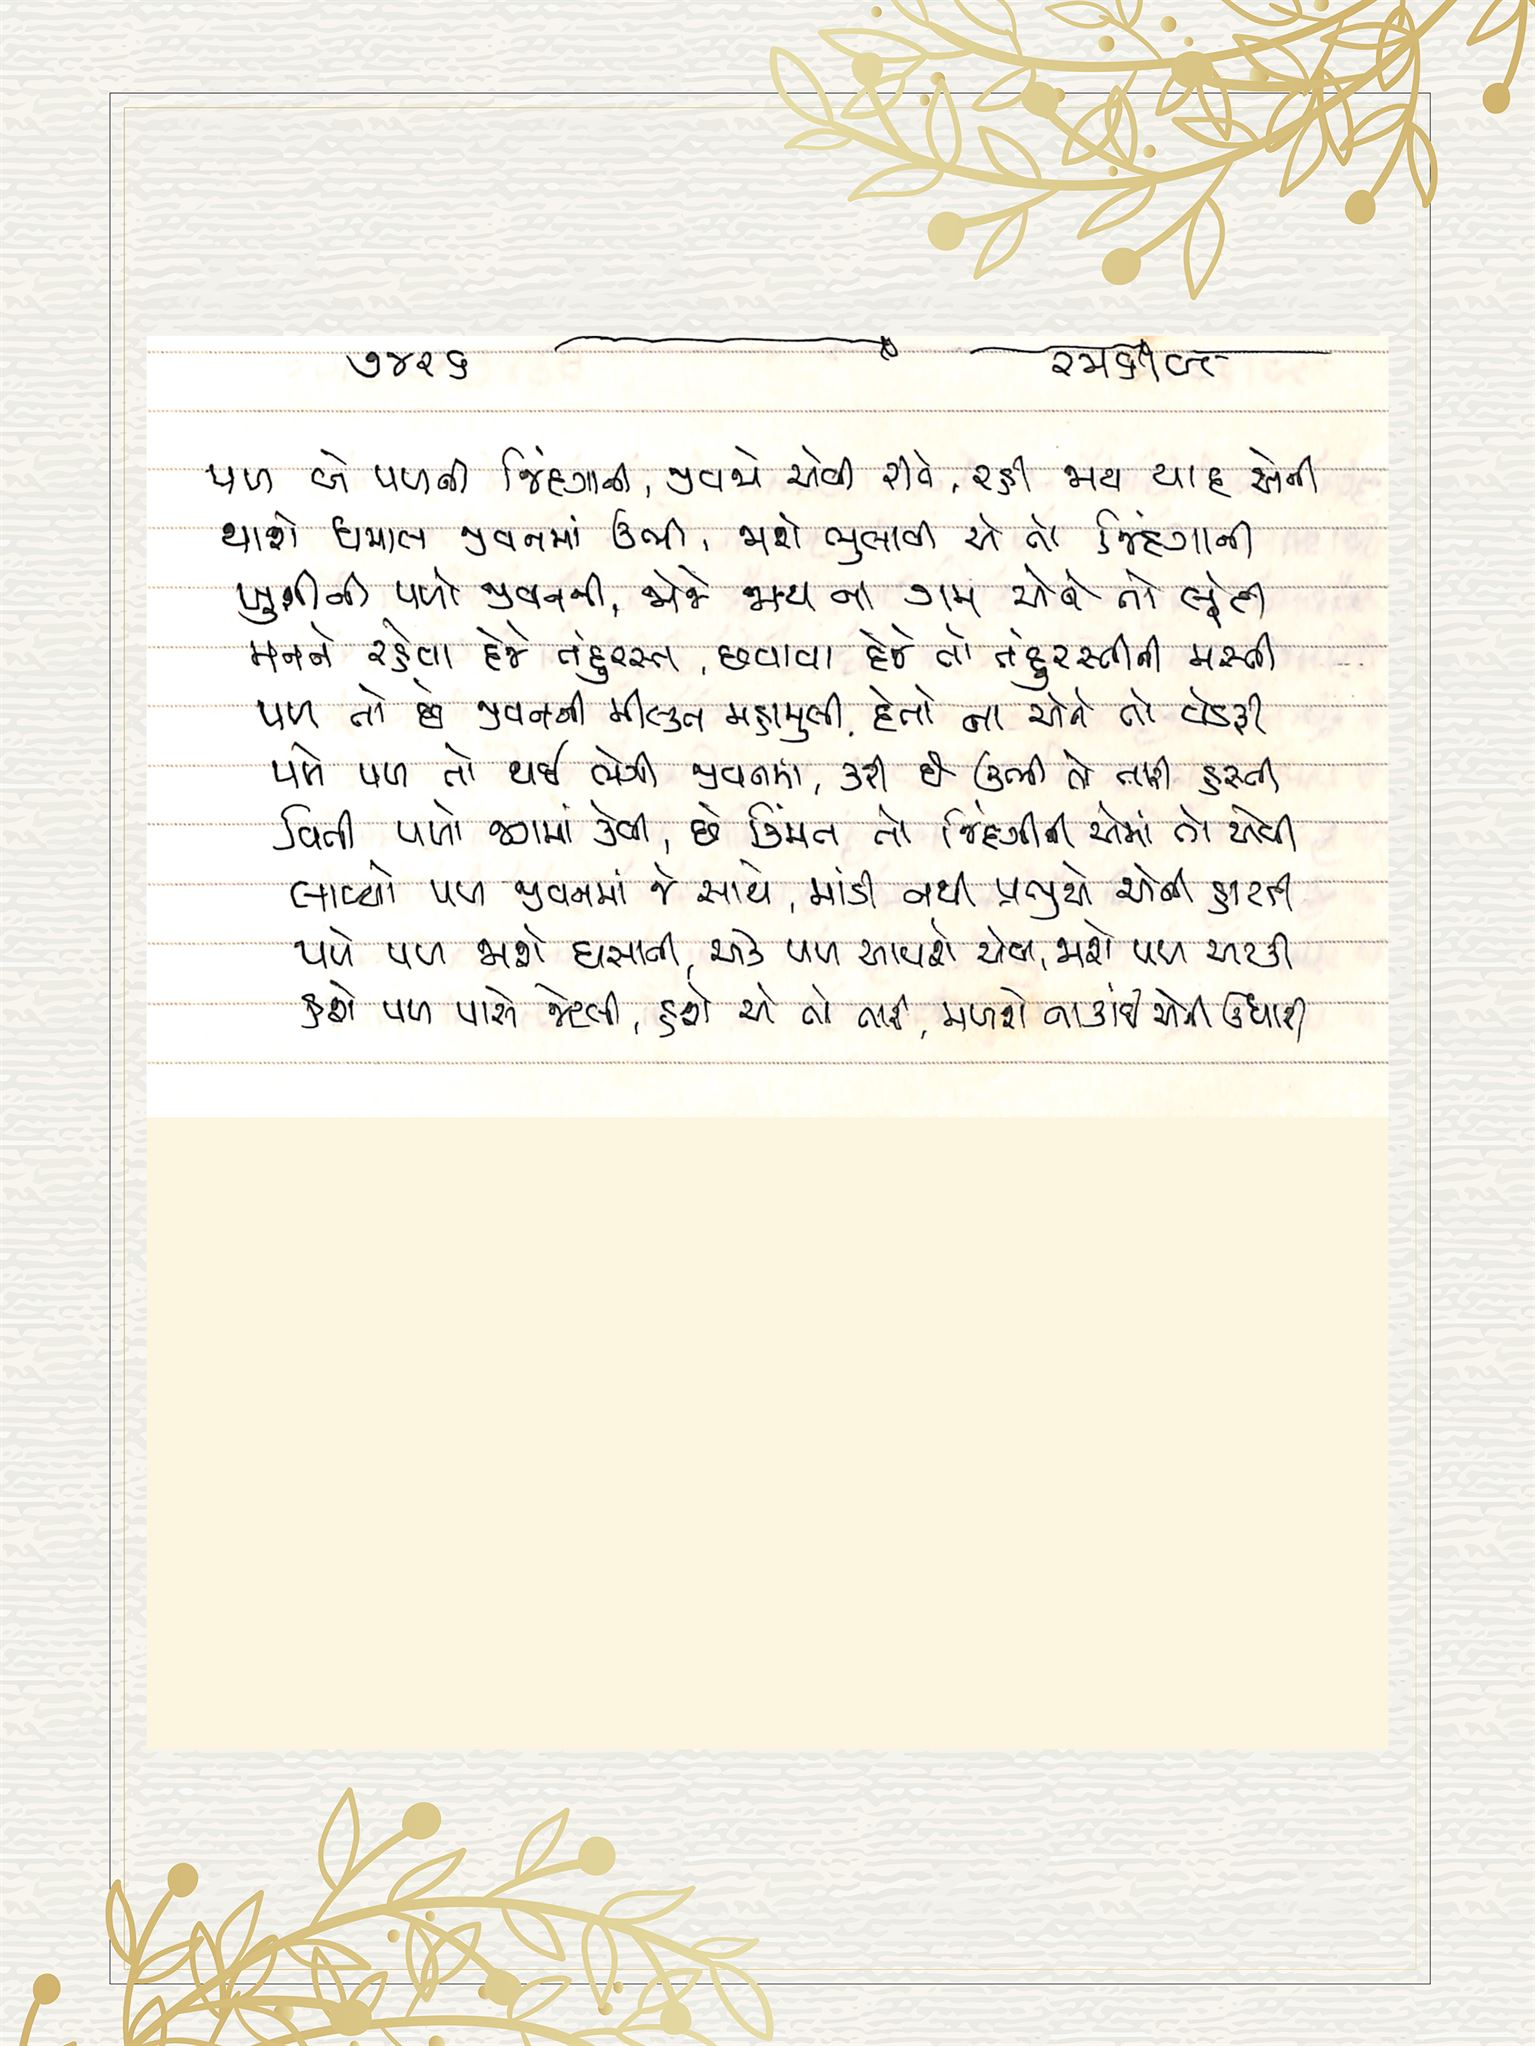 ૭૪૨૬
પળ બે પળની જિંદગાની, જીવજે એવી રીતે, રહી જાય યાદ એની
થાશે ધમાલ જીવનમાં ઊભી, જાશે ભુલાવી એ તો જિંદગાની
ખુશીની પળો જીવનની, જોજે જાય ના ગમ એને તો લૂંટી
મનને રહેવા દેજે તંદુરસ્ત, છવાવા દેજે તો તંદુરસ્તીની મસ્તી
પળ તો છે જીવનની મીલ્કત મહામુલી, દેતો ના એને તો વેડફી
પળે પળ તો થઈ ભેગી જીવનમાં, કરી છે ઊભી તો તારી હસ્તી
વિતી પળો જગમાં કેવી, છે કિંમત તો જિંદગીની એમાં તો એવી
લાવ્યો પળ જીવનમાં જે સાથે, માંડી નથી પ્રભુએ એની હાટડી
પળે પળ જાશે ઘસાતી, એક પળ આવશે એવી, જાશે પળ અટકી
હશે પળ પાસે જેટલી, હશે એ તો તારી, મળશે ના કાંઈ એની ઉધારી